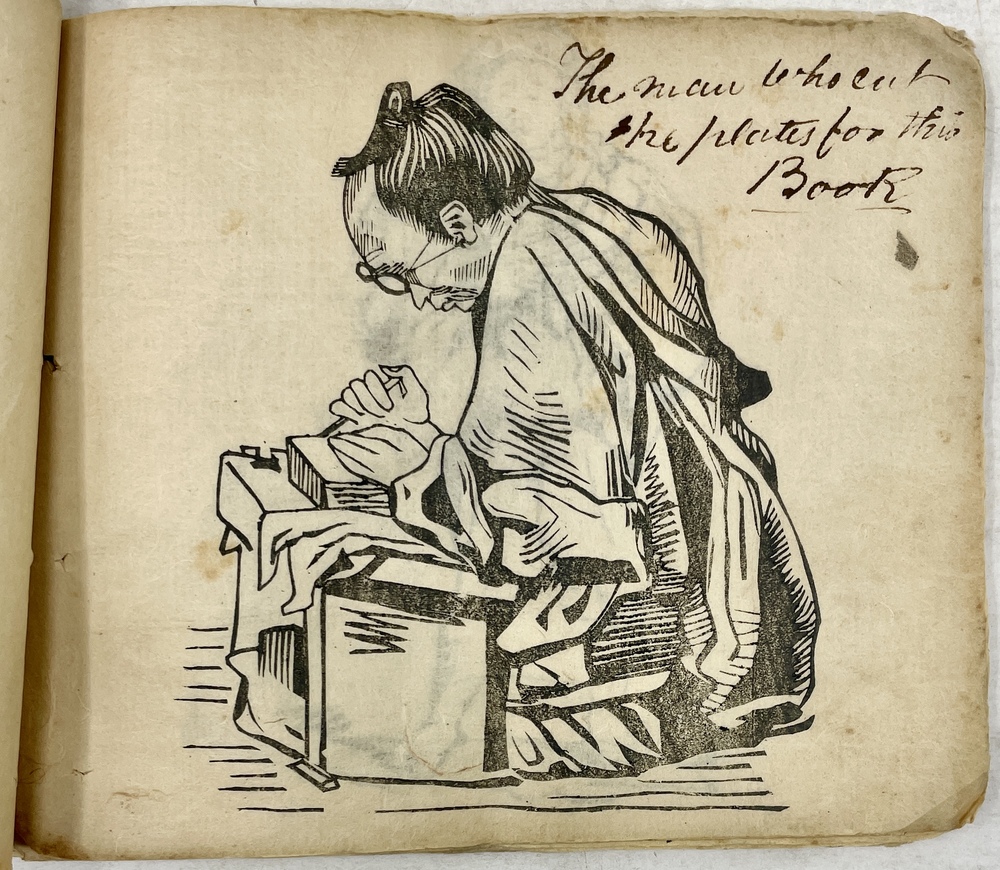 The man who cut
the plates for this
Book